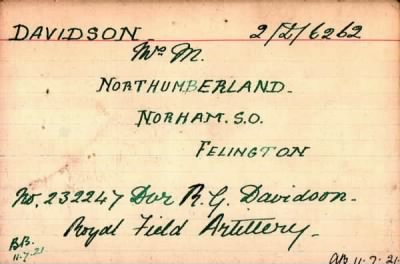 DAVIDSON 2/Z/6262
Mrs M.
NORTHUMBERLAND.
NORHAM. S.O.
FELINGTON
No. 232247 Dvr R. G. Davidson.
Royal Field Artillery.
BB.
11-7-21
11.7.21